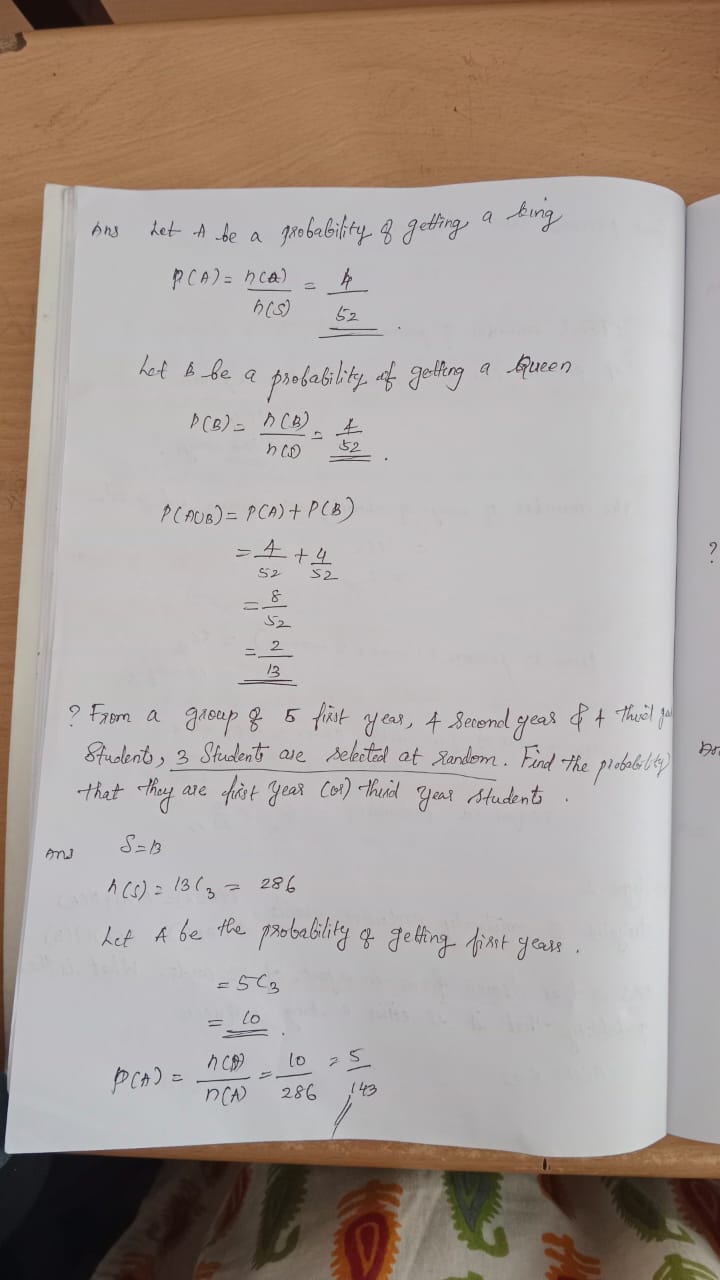 Ans Let A be a probability of getting a king
P(A) = n(A)/n(S) = 4/52.
Let B be a probability of getting a Queen
P(B) = n(B)/n(S) = 4/52.
P(A∪B) = P(A) + P(B)
= 4/52 + 4/52
= 8/52
= 2/13
? From a group of 5 first year, 4 Second year & 4 third
Students, 3 Students are selected at random. Find the probability
that they are first year (or) third year students.
Ans S=13
n(S) = 13C3 = 286
Let A be the probability of getting first years.
= 5C3
= 10.
P(A) = /n(A) = 10/286 = 5/143
?